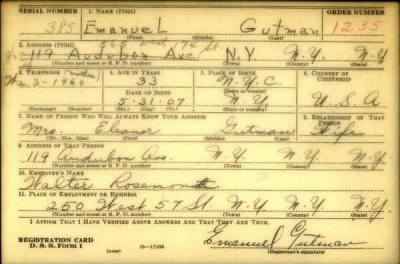 SERIAL NUMBER 1. NAME (Print) ORDER NUMBER
385 Emanuel Gutman 1235
(First) (Middle) (Last)
2. ADDRESS (Print)
565 West St.
119 Audubon Ave N.Y. N.Y. N.Y.
(Number and street or R. F. D. number) (Town) (County) (State)
3. TELEPHONE 4. AGE IN YEARS 5. PLACE OF BIRTH 6. COUNTRY OF CITIZENSHIP
Wa. 3-1960 33 N.Y.C.
DATE OF BIRTH (Town or county)
5-31-07 N.Y. U.S.A.
(Exchange) (Number) (Mo.) (Day) (Yr.) (State or country)
7. NAME OF PERSON WHO WILL ALWAYS KNOW YOUR ADDRESS 8. RELATIONSHIP OF THAT PERSON
Mrs. Eleanor Gutman Wife
(Mr., Mrs., Miss) (First) (Middle) (Last)
9. ADDRESS OF THAT PERSON
119 Audubon Ave. N.Y. N.Y. N.Y.
(Number and street or R. F. D. number) (Town) (County) (State)
10. EMPLOYER'S NAME
Walter Rosemond
11. PLACE OF EMPLOYMENT OR BUSINESS
250 West 57 St. N.Y. N.Y. N.Y.
(Number and street or R. F. D. number) (Town) (County) (State)
I AFFIRM THAT I HAVE VERIFIED ABOVE ANSWERS AND THAT THEY ARE TRUE.
REGISTRATION CARD
D. S. S. Form 1 (over) 16-17105 Emanuel Gutman
(Registrant's signature)